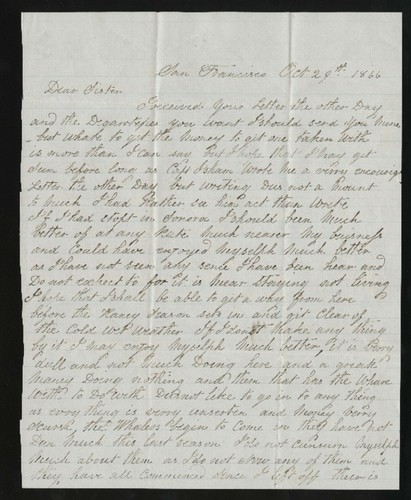 San Francisco Oct 29th 1866
Dear Sister
I received your Letter the other Day
and the Degarotipe you want I should send you Mine
but whare to get the money to git one taken with
is more than I can say but I hope that I may get
sum before long as Capt Isham Wrote me a verry encouraig
Letter the other Day but writing Dus not a mount
to much I had Rather see him act than write
If I had stopt in Sonora I should been Much
better of at any Rate Much nearer My buisness
and could have enjoyed Myselph Much better
as I have not been any sence I have been hear and
Do not expect to for it is mear Staying not living
I hope that I shall be able to git a way from here
before the Raney season sets in and git clear of
the Cold wet Weather If I dont Make any thing
by it I may enjoy Myselph Much better, it is Very
dull and not Much Doing here and a greate
Maney Doing nothing and them that has the Whare
With to Do with Dus not like to go in to any thing
as evry thing is verry unserten and Money very
scarse, the Whalers begin to come in they have not
Don Much this last season I do not cuncern Myselph
Much about them as I do not know any of them and
they have all commenced sence I left off thare is